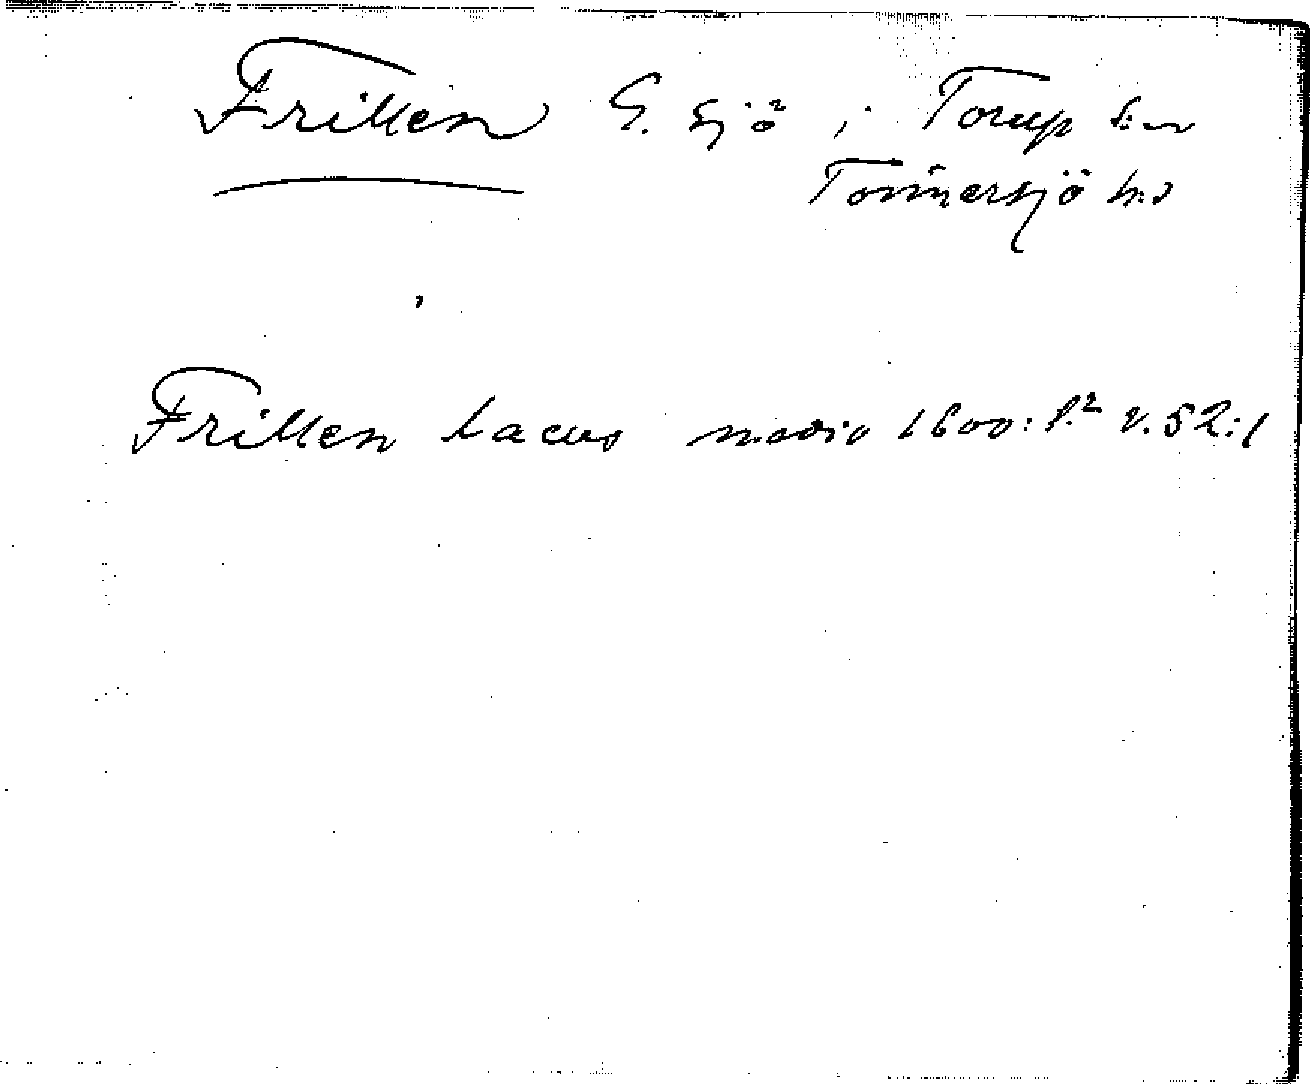 Frillen G. sjö i Torup sn
Tönnersjö hd
Frillen Lacus medio 1600: